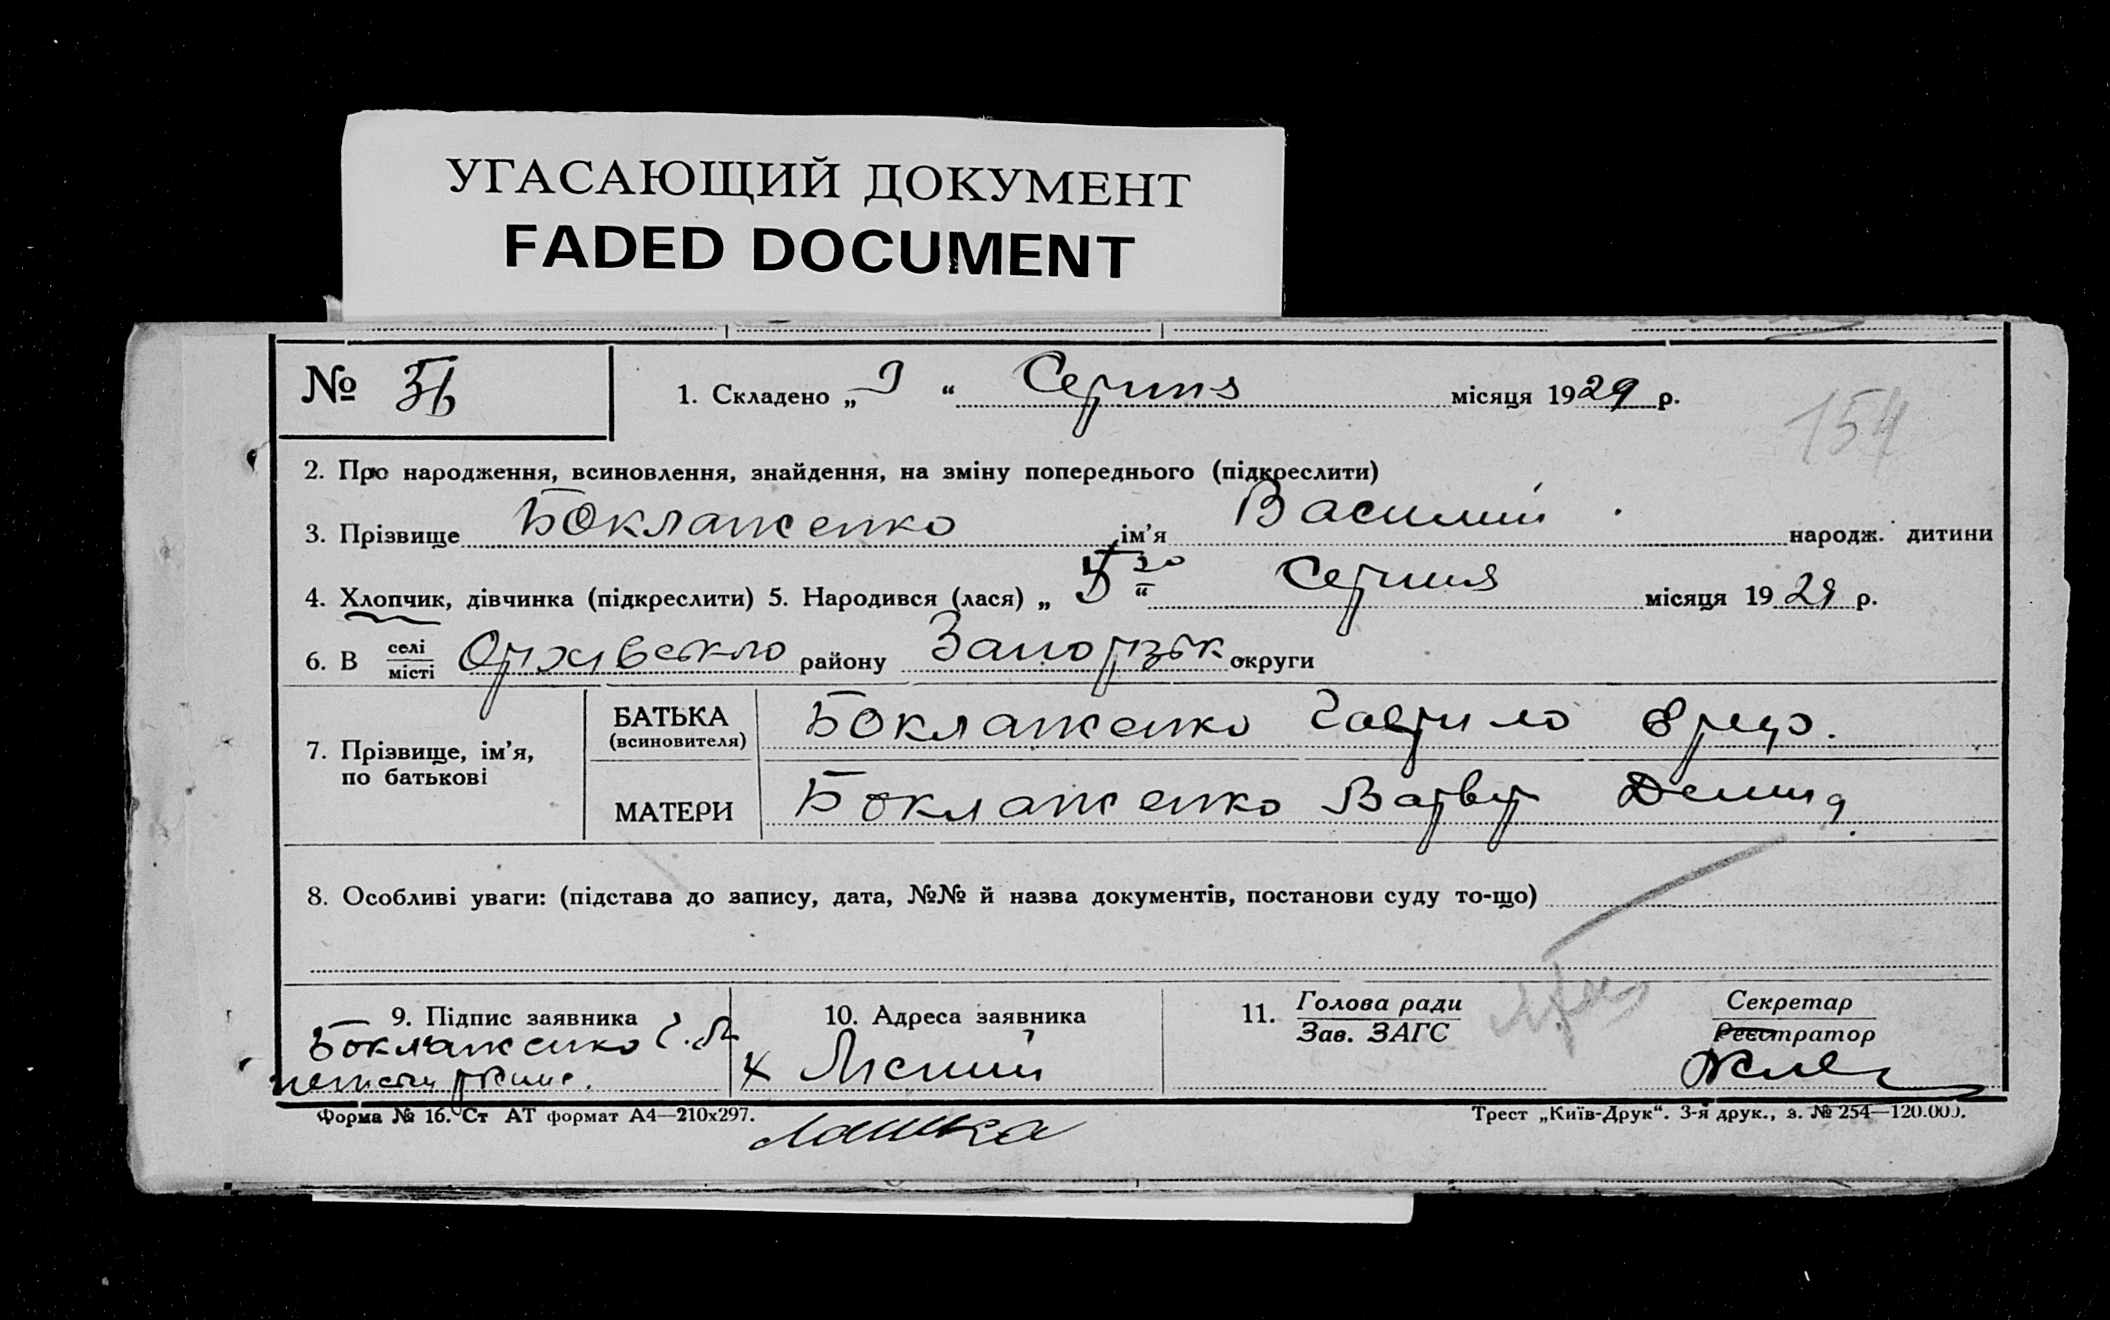 УГАСАЮЩИЙ ДОКУМЕНТ
FADED DOCUMENT
№ 56
1. Складено „ 9 “ Серпня місяця 1929 р.
154
2. Про народження, всиновлення, знайдення, на зміну попереднього (підкреслити)
3. Прізвище Баклаженко ім’я Василий народж. дитини
4. Хлопчик, дівчинка (підкреслити) 5. Народився (лася) „ 5го “ Серпня місяця 1929 р.
6. В селі
місті
району Запорізьк округи
7. Прізвище, ім’я,
по батькові
БАТЬКА
(всиновителя)
Боклаженко Гаврило
МАТЕРИ
Боклаженко Варвар Демид
8. Особливі уваги: (підстава до запису, дата, №№ й назва документів, постанови суду то-що)
9. Підпис заявника
Боклаженко
10. Адреса заявника
х
11. Голова ради
Зав. ЗАГС
Секретар
Реєстратор
Форма № 16. Ст АТ формат А4—210х297.
Трест „Київ-Друк“. 3-я друк., з. № 254—120.000.